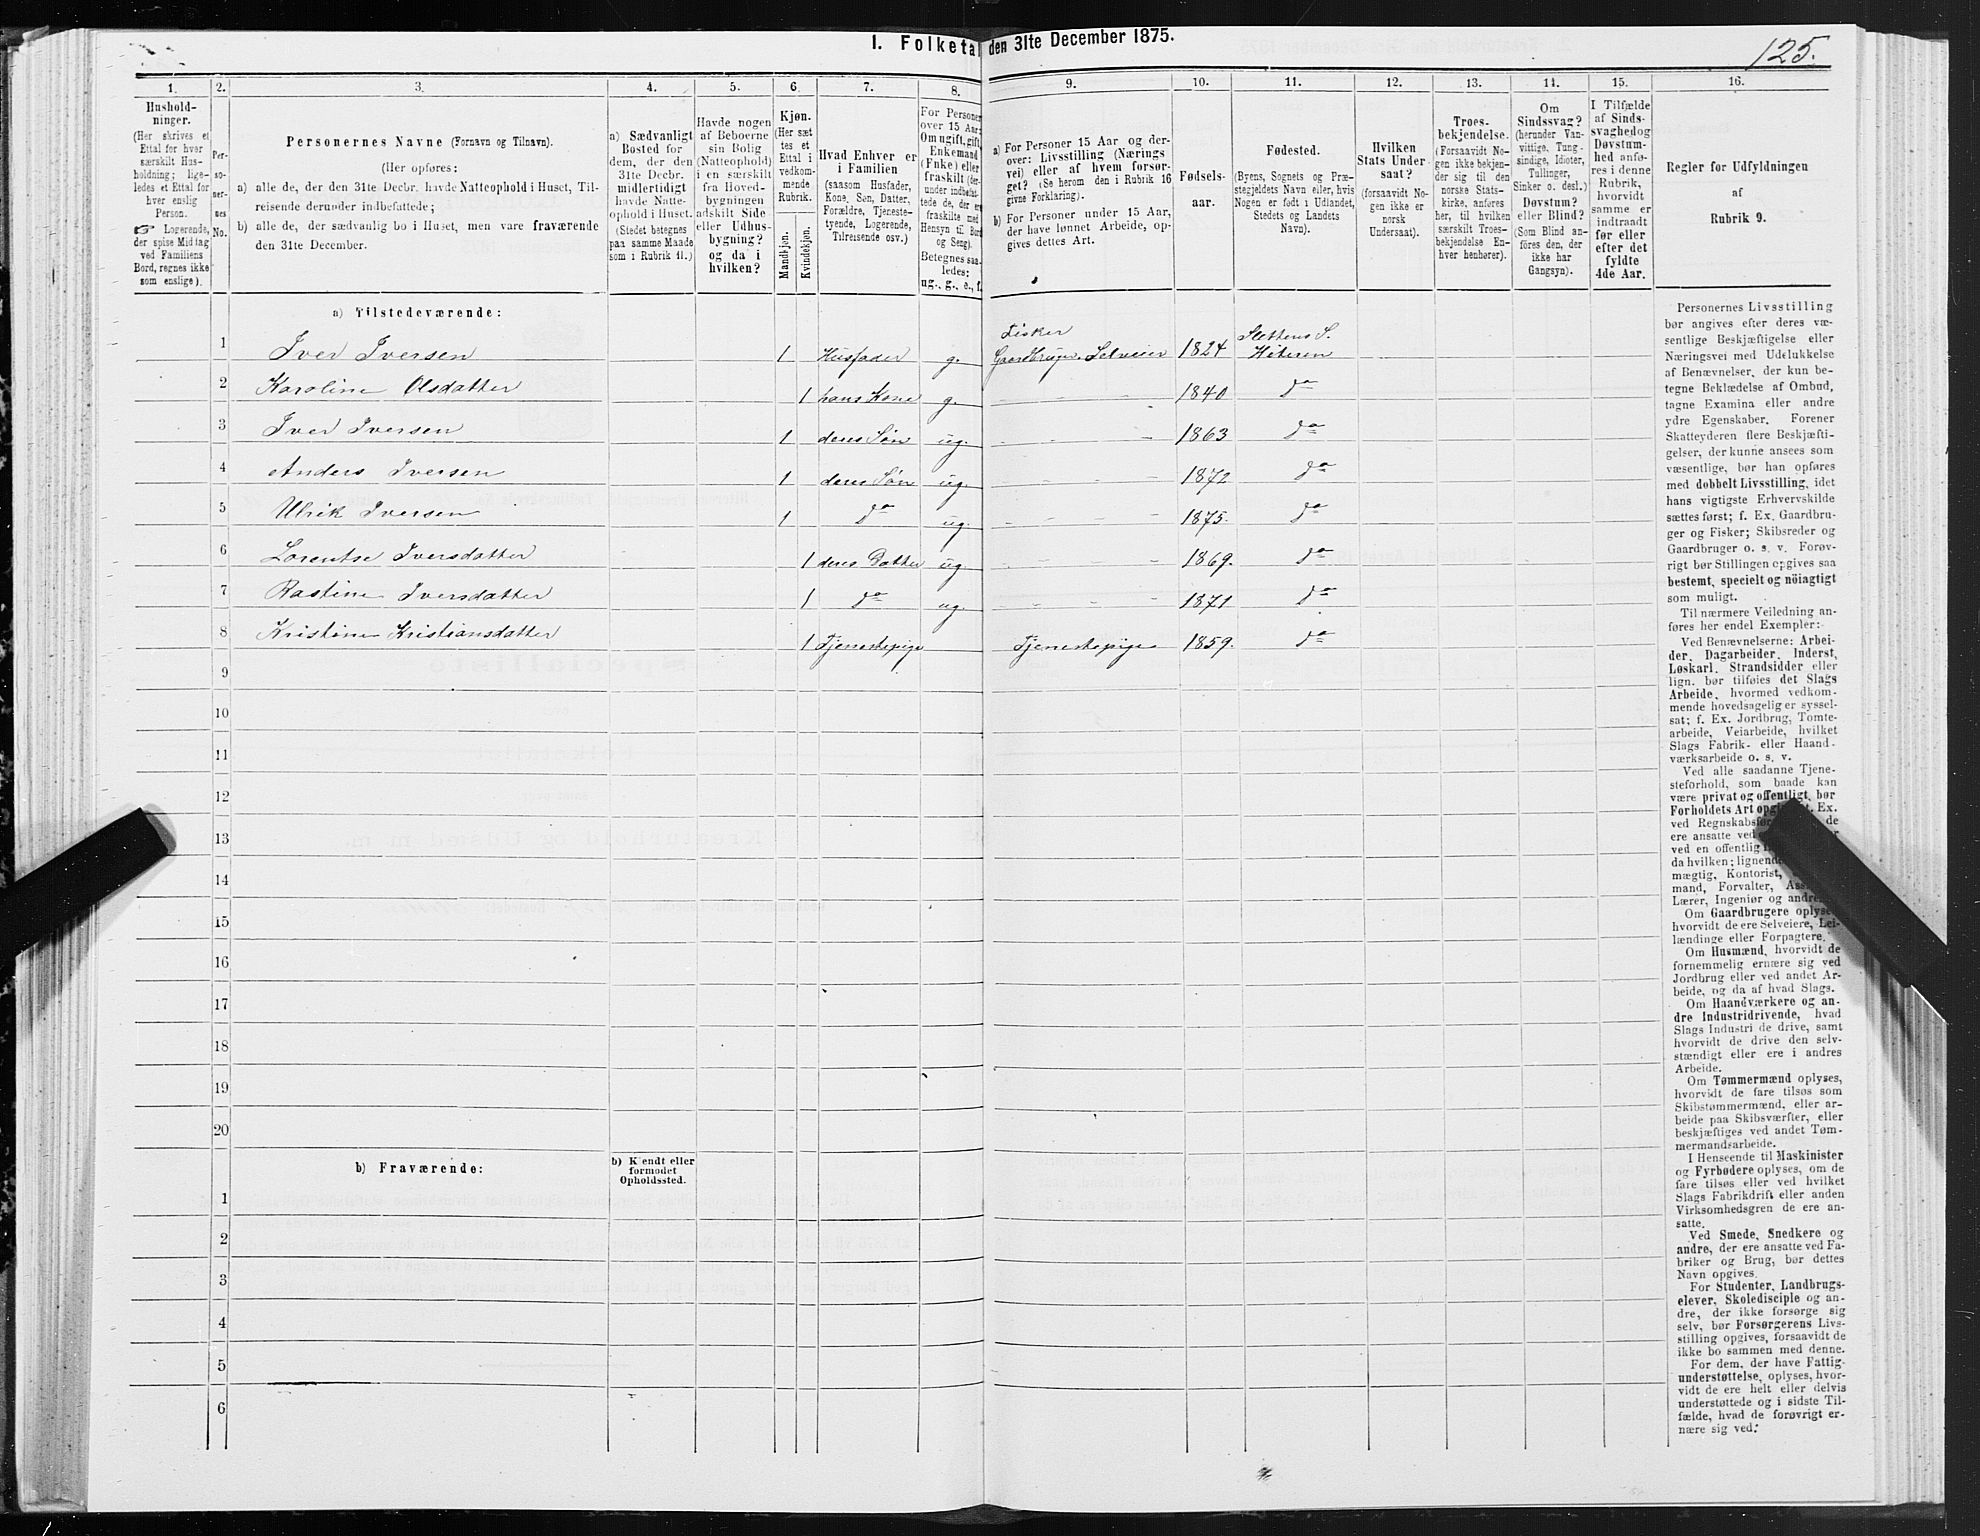 I. Folketa den 31te December 1875.
125.
1.
2.
3.
4.
5.
6.
7.
8.
9.
10.
11.
12.
13.
14.
15.
16.
Hushold-
ninger.
(Her skrives et
Ettal for hver
særskilt Hus-
holdning; lige-
ledes et Ettal for
hver enslig
Person.
☞ Logerende,
der spise Middag
ved Familiens
Bord, regnes ikke
som enslige).
Per-
so-
ner-
nes
No.
Personernes Navne (Fornavn og Tilnavn).
(Her opføres:
a) alle de, der den 31te Decbr. havde Natteophold i Huset, Til-
reisende derunder indbefattede;
b) alle de, der sædvanlig bo i Huset, men vare fraværende
den 31te December.
a) Sædvanligt
Bosted for
dem, der den
31te Decbr.
midlertidigt
havde Natte-
ophold i Huset.
(Stedet betegnes
paa samme Maade
som i Rubrik 11.)
Havde nogen
af Beboerne
sin Bolig
(Natteophold)
i en særskilt
fra Hoved-
bygningen
adskilt Side
eller Udhus-
bygning?
og da i
hvilken?
Kjøn.
(Her sæt
tes et
Ettal i
vedkom-
mende
Rubrik.
Mandkjøn.
Kvindekjøn.
Hvad Enhver er
i Familien
(saasom Husfader,
Kone, Søn, Datter,
Forældre, Tjeneste-
tyende, Logerende,
Tilreisende osv.)
For Personer
over 15 Aar:
Om ugift, gift,
Enkemand
(Enke) eller
fraskilt (der-
under indbefat-
tede de, der ere
fraskilte med
Hensyn til Bord
og Seng).
Betegnes saa-
ledes:
ug., g., e., f.
a) For Personer 15 Aar og der-
over: Livsstilling (Nærings
vei) eller af hvem forsør-
get? (Se herom den i Rubrik 16
givne Forklaring).
b) For Personer under 15 Aar,
der have lønnet Arbeide, op-
gives dettes Art.
Fødsels-
aar.
Fødested.
(Byens, Sognets og Præ-
stegjeldets Navn eller, hvis
Nogen er født i Udlandet,
Stedets og Landets
Navn).
Hvilken
Stats Under-
saat?
(forsaavidt No-
gen ikke er
norsk
Undersaat).
Troes-
bekjendelse.
(Forsaavidt No-
gen ikke bekjen-
der sig til den
norske Stats-
kirke, anføres
her, til hvilken
særskilt Troes-
bekjendelse En-
hver henhører).
Om
Sindssvag?
(herunder Van-
vittige, Tung-
sindige, Idioter,
Tullinger,
Sinker o. desl.)
Døvstum?
eller Blind?
(Som Blind an-
føres den, der
ikke har
Gangsyn).
I Tilfælde
af Sinds-
svaghed og
Døvstum-
hed anfø-
res i denne
Rubrik,
hvorvidt
samme er
indtraadt
før eller
efter det
fyldte
4de Aar.
Regler for Udfyldningen
af
Rubrik 9.
a) Tilstedeværende:
1 Iver Iversen 1 Husfader g. Fisker Gaardbruger Selveier 1824 Slettens S. Hiteren
2 Karoline Olsdatter 1 hans Kone g. 1840 do
3 Iver Iversen 1 deres Søn ug. 1863 do
4 Anders Iversen 1 deres Søn ug. 1872 do
5 Ulrik Iversen 1 do ug. 1875. do
6 Lorentse Iversdatter 1 deres Datter ug. 1869. do
7 Rastine Iversdatter 1 do ug. 1871 do
8 Kristine Kristiansdatter 1 Tjenestepige Tjenestepige 1859. do
9
10
11
12
13
14
15
16
17
18
19
20
b) Fraværende:
b) Kjendt eller
formodet
Opholdssted.
1
2
3
4
5
6
Personernes Livsstilling
bør angives efter deres væ-
sentlige Beskjæftigelse eller
Næringsvei med Udelukkelse
af Benævnelser, der kun be-
tegne Beklædelse af Ombud,
tagne Examina eller andre
ydre Egenskaber. Forener
Skatteyderen flere Beskjæfti-
gelser, der kunne ansees som
væsentlige, bør han opføres
med dobbelt Livsstilling, idet
hans vigtigste Erhvervskilde
sættes først; f. Ex. Gaardbru-
ger og Fisker; Skibsreder og
Gaardbruger o. s. v. Forøv-
rigt bør Stillingen opgives saa
bestemt, specielt og nöiagtigt
som muligt.
Til nærmere Veiledning an-
føres her endel Exempler:
Ved Benævnelserne: Arbei-
der, Dagarbeider, Inderst,
Løskarl, Strandsidder eller
lign. bør tilføies det Slags
Arbeide, hvormed vedkom-
mende hovedsagelig er syssel-
sat; f. Ex. Jordbrug, Tomte-
arbeide, Veiarbeide, hvilket
Slags Fabrik- eller Haand-
værksarbeide o. s. v.
Ved alle saadanne Tjene-
steforhold, som baade kan
være privat og offentligt, bør
Forholdets Art Ex.
ved de
ere ansatte ved
ved en offentlig
da hvilken; lignende
mægtig, Kontorist,
mand, Forvalter,
Lærer, Ingeniør og
Om Gaardbrugere oplyses,
hvorvidt de ere Selveiere, Lei-
lændinge eller Forpagtere.
Om Husmænd, hvorvidt de
fornemmelig ernære sig ved
Jordbrug eller ved andet Ar-
beide, og da af hvad Slags.
Om Haandværkere og an-
dre Industridrivende, hvad
Slags Industri de drive, samt
hvorvidt de drive den selv-
stændigt eller ere i andres
Arbeide.
Om Tømmermænd oplyses,
hvorvidt de fare tilsøs som
Skibstømmermænd, eller ar-
beide paa Skibsværfter, eller
beskjæftiges ved andet Tøm-
mermandsarbeide.
I Henseende til Maskinister
og Fyrbødere oplyses, om de
fare tilsøs eller ved hvilket
Slags Fabrikdrift eller anden
Virksomhedsgren de ere an-
satte.
Ved Smede, Snedkere og
andre, der ere ansatte ved Fa-
briker og Brug, bør dettes
Navn opgives.
For Studenter, Landbrugs-
elever, Skoledisciple og an-
dre, der ikke forsørge sig
selv, bør Forsørgerens Livs-
stilling opgives, forsaavidt de
ikke bo sammen med denne.
For dem, der have Fattig-
understøttelse, oplyses, hvor-
vidt de ere helt eller delvis
understøttede og i sidste Til-
fælde, hvad de forøvrigt er-
nære sig ved.